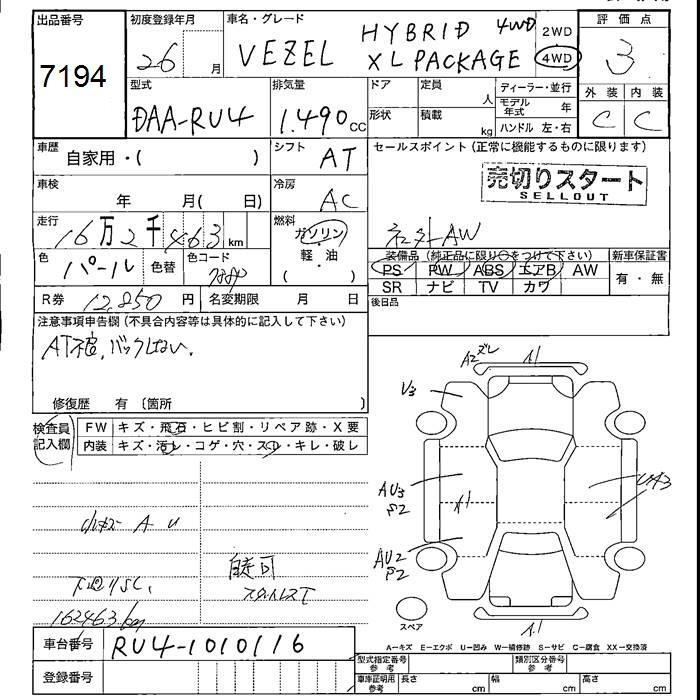 出品番号
7194
初度登録年月
26 月
車名・グレード
VEZEL HYBRID 4WD
XL PACKAGE
2WD
4WD
評価点
3
外装 内装
C C
型式
DAA-RU4
排気量
1.490 cc
ドア 定員 人
形状 積載 kg
ディーラー・並行
モデル年式 年
ハンドル 左・右
車歴
自家用・( )
シフト
AT
セールスポイント(正常に機能するものに限ります)
売切りスタート
SELLOUT
車検
年 月( 日)
冷房
AC
走行
16万2千463 km
燃料
ガソリン
・
軽・油
( )
社外AW
色
パール
色替
色コード
装備品(純正品に限り○をつけて下さい)
PS PW ABS エアB AW
SR ナビ TV カワ
新車保証書
有・無
R券 12,850 円
名変期限 月 日
後日品
注意事項申告欄(不具合内容等は具体的に記入して下さい)
AT不良,バックしない.
修復歴 有〔箇所
検査員記入欄
FW キズ・飛石・ヒビ割・リペア跡・X要
内装 キズ・汚レ・コゲ・穴・スレ・キレ・破レ
小キズ A U
下廻りSC,
162463km
自走可
A2ズレ
A1
U3
AU3
S2
A1
UA3
AU2
S2
A1
スペア
車台番号 RU4-1010116
登録番号
A−キズ E−エクボ U−凹み W−補修跡 S−サビ C−腐食 XX−交換済
型式指定番号 参考
類別区分番号 参考
車庫証明用 参考 長さ cm 幅 cm 高さ cm